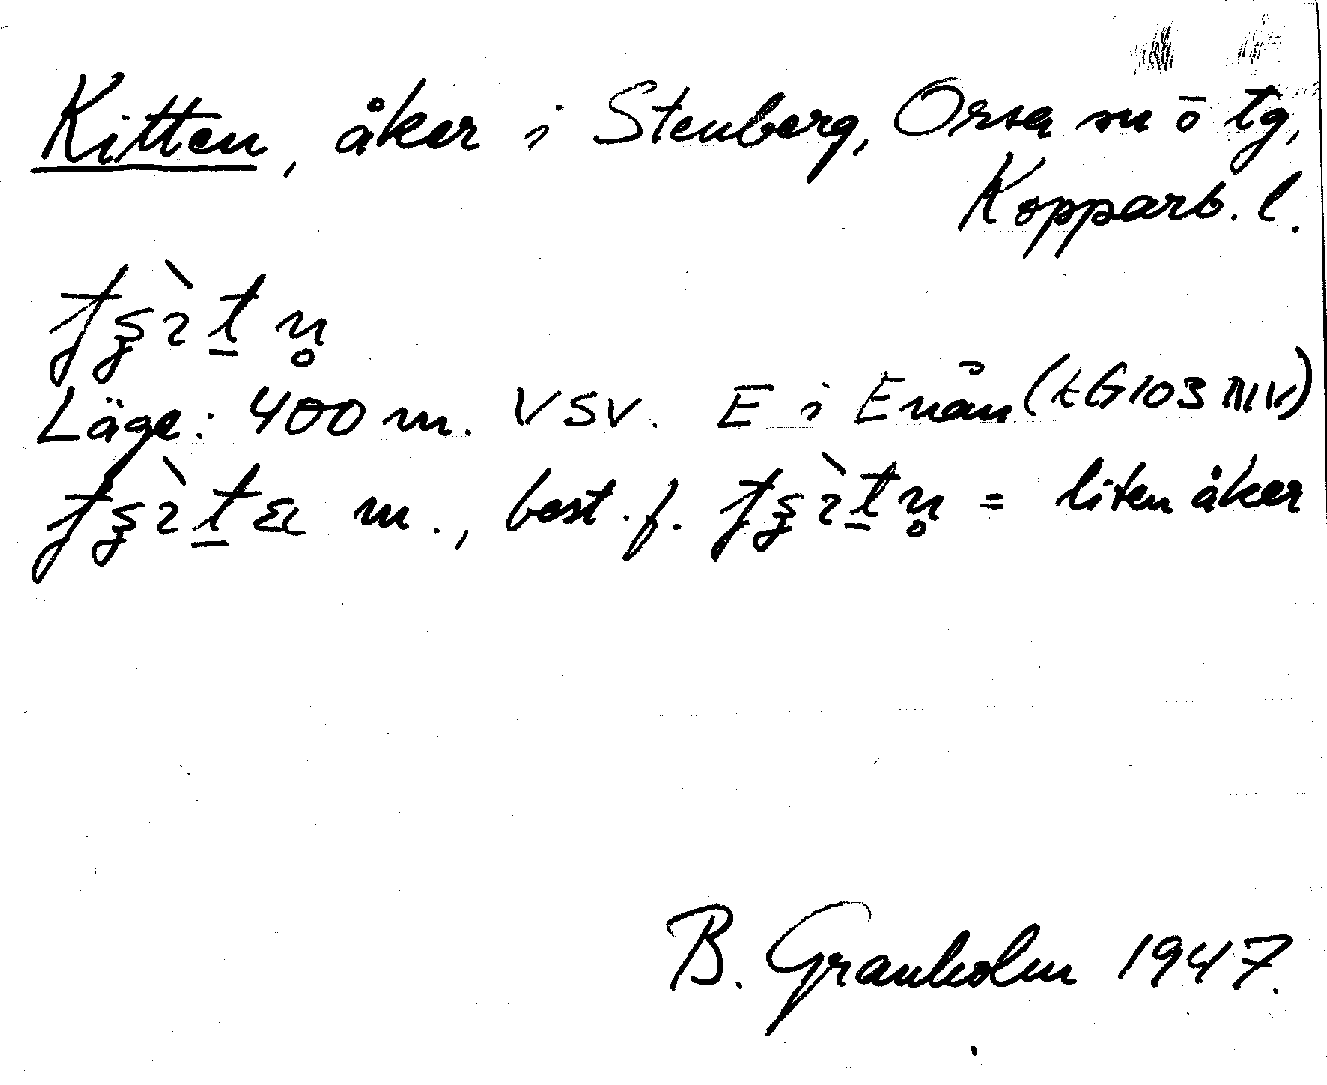 Kitten, åker i Stenberg, Orsa sn o tg,
Kopparb. l.
Läge: 400 m. VSV. E i Enån (tG103 NIV)
m., best. f. = liten åker
B. Granholm 1947.